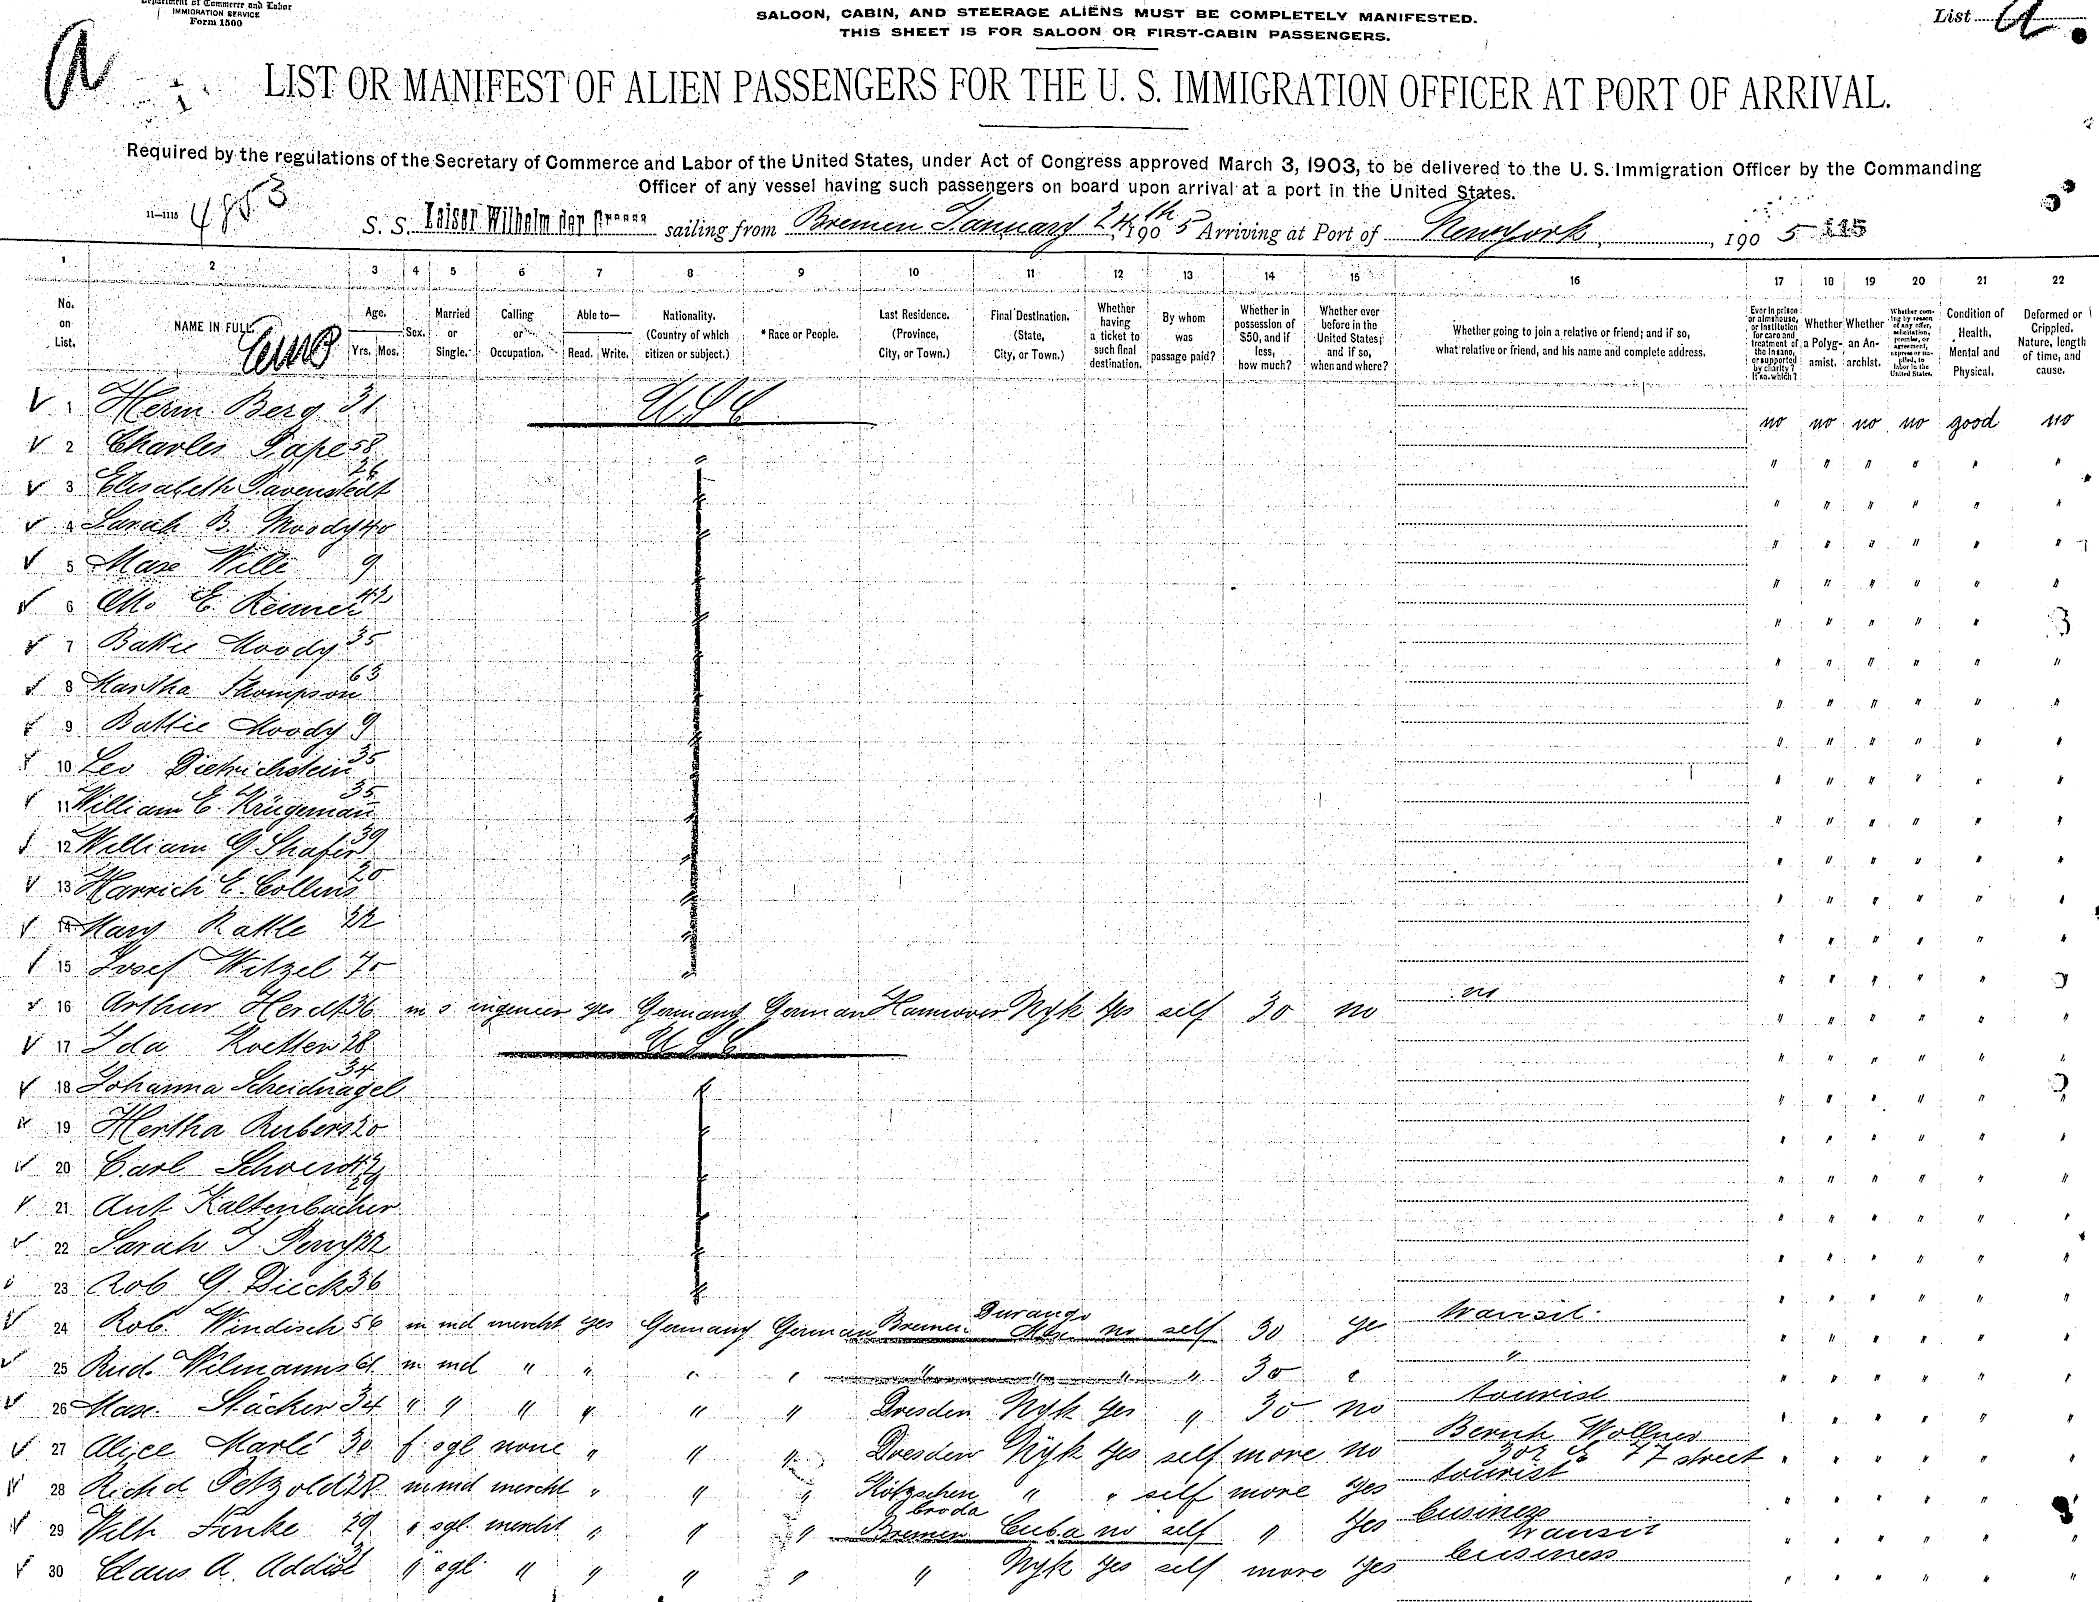 Department of Commerce and Labor
IMMIGRATION SERVICE
Form 1500
SALOON, CABIN, AND STEERAGE ALIENS MUST BE COMPLETELY MANIFESTED.
THIS SHEET IS FOR SALOON OR FIRST-CABIN PASSENGERS.
List a.
a
LIST OR MANIFEST OF ALIEN PASSENGERS FOR THE U. S. IMMIGRATION OFFICER AT PORT OF ARRIVAL.
Required by the regulations of the Secretary of Commerce and Labor of the United States, under Act of Congress approved March 3, 1903, to be delivered to the U. S. Immigration Officer by the Commanding
Officer of any vessel having such passengers on board upon arrival at a port in the United States.
11-1115 4853
S. S. Kaiser Wilhelm der Grosse sailing from Bremen January 24th, 1905 Arriving at Port of Newyork, 1905 115
1 2 3 4 5 6 7 8 9 10 11 12 13 14 15 16 17 18 19 20 21 22
No. on List. NAME IN FULL. Age. Yrs. Mos. Sex. Married or Single. Calling or Occupation. Able to— Read. Write. Nationality. (Country of which citizen or subject.) *Race or People. Last Residence. (Province, City, or Town.) Final Destination. (State, City, or Town.) Whether having a ticket to such final destination. By whom was passage paid? Whether in possession of $50, and if less, how much? Whether ever before in the United States; and if so, when and where? Whether going to join a relative or friend; and if so, what relative or friend, and his name and complete address. Ever in prison or almshouse, or institution for care and treatment of the insane, or supported by charity? If so, which? Whether a Polygamist. Whether an Anarchist. Whether coming by reason of any offer, solicitation, promise, or agreement, express or implied, to labor in the United States. Condition of Health, Mental and Physical. Deformed or Crippled. Nature, length of time, and cause.
1 Herm Berg 31 U S C no no no no good no
2 Charles Pape 58 " " " " " " "
3 Elisabeth Pavenstedt 26 " " " " " " "
4 Sarah B. Moody 40 " " " " " " "
5 Max Wille 9 " " " " " " "
6 Otto E. Renner 42 " " " " " "
7 Battie Moody 35 " " " " " " "
8 Martha Thompson 63 " " " " " " "
9 Battie Moody 9 " " " " " " "
10 Leo Dietrichstein 35 " " " " " " "
11 William E. Krügeman 35 " " " " " " "
12 William G. Shafer 39 " " " " " " "
13 Harrich E. Collins 20 " " " " " " "
14 Mary Rattle 22 " " " " " " "
15 Josef Witzel 70 " " " " " "
16 Arthur Herdt 36 m s ingeneer yes Germany German Hannover Nyk yes self 30 no no " " " " " "
17 Ida Koetter 28 U S C " " " " " "
18 Johanna Scheidnagel 34 " " " " " " "
19 Hertha Rubens 20 " " " " " " "
20 Carl 42 " " " " " " "
21 Ant Kaltenbacher 29 " " " " " " "
22 Sarah J. Perry 22 " " " " " " "
23 Rob G. Dieck 36 " " " " " " "
24 Rob. Windisch 56 m md mercht yes Germany German Bremen Durango Mex no self 30 ye transit " " " " " "
25 Rud. Wilmanns 61 m md " " " " " " " " 30 " " " " " " " "
26 Max. Stäcker 34 " " " " " " Dresden Nyk yes " 30 no tourist " " " " " "
27 Alice Marlé 30 f sgl none " " " Dresden Nyk yes self more no Bernh Wollner 302 E 77 street " " " " " "
28 Richd Petzold 28 m md mercht " " " Kötzschenbroda " " self more yes tourist " " " " " "
29 Wilh Finke 29 " sgl mercht " " " Bremen Cuba no self " yes business transit " " " " " "
30 Claus A. Addix " sgl " " " " " Nyk yes self more yes business " " " " " "